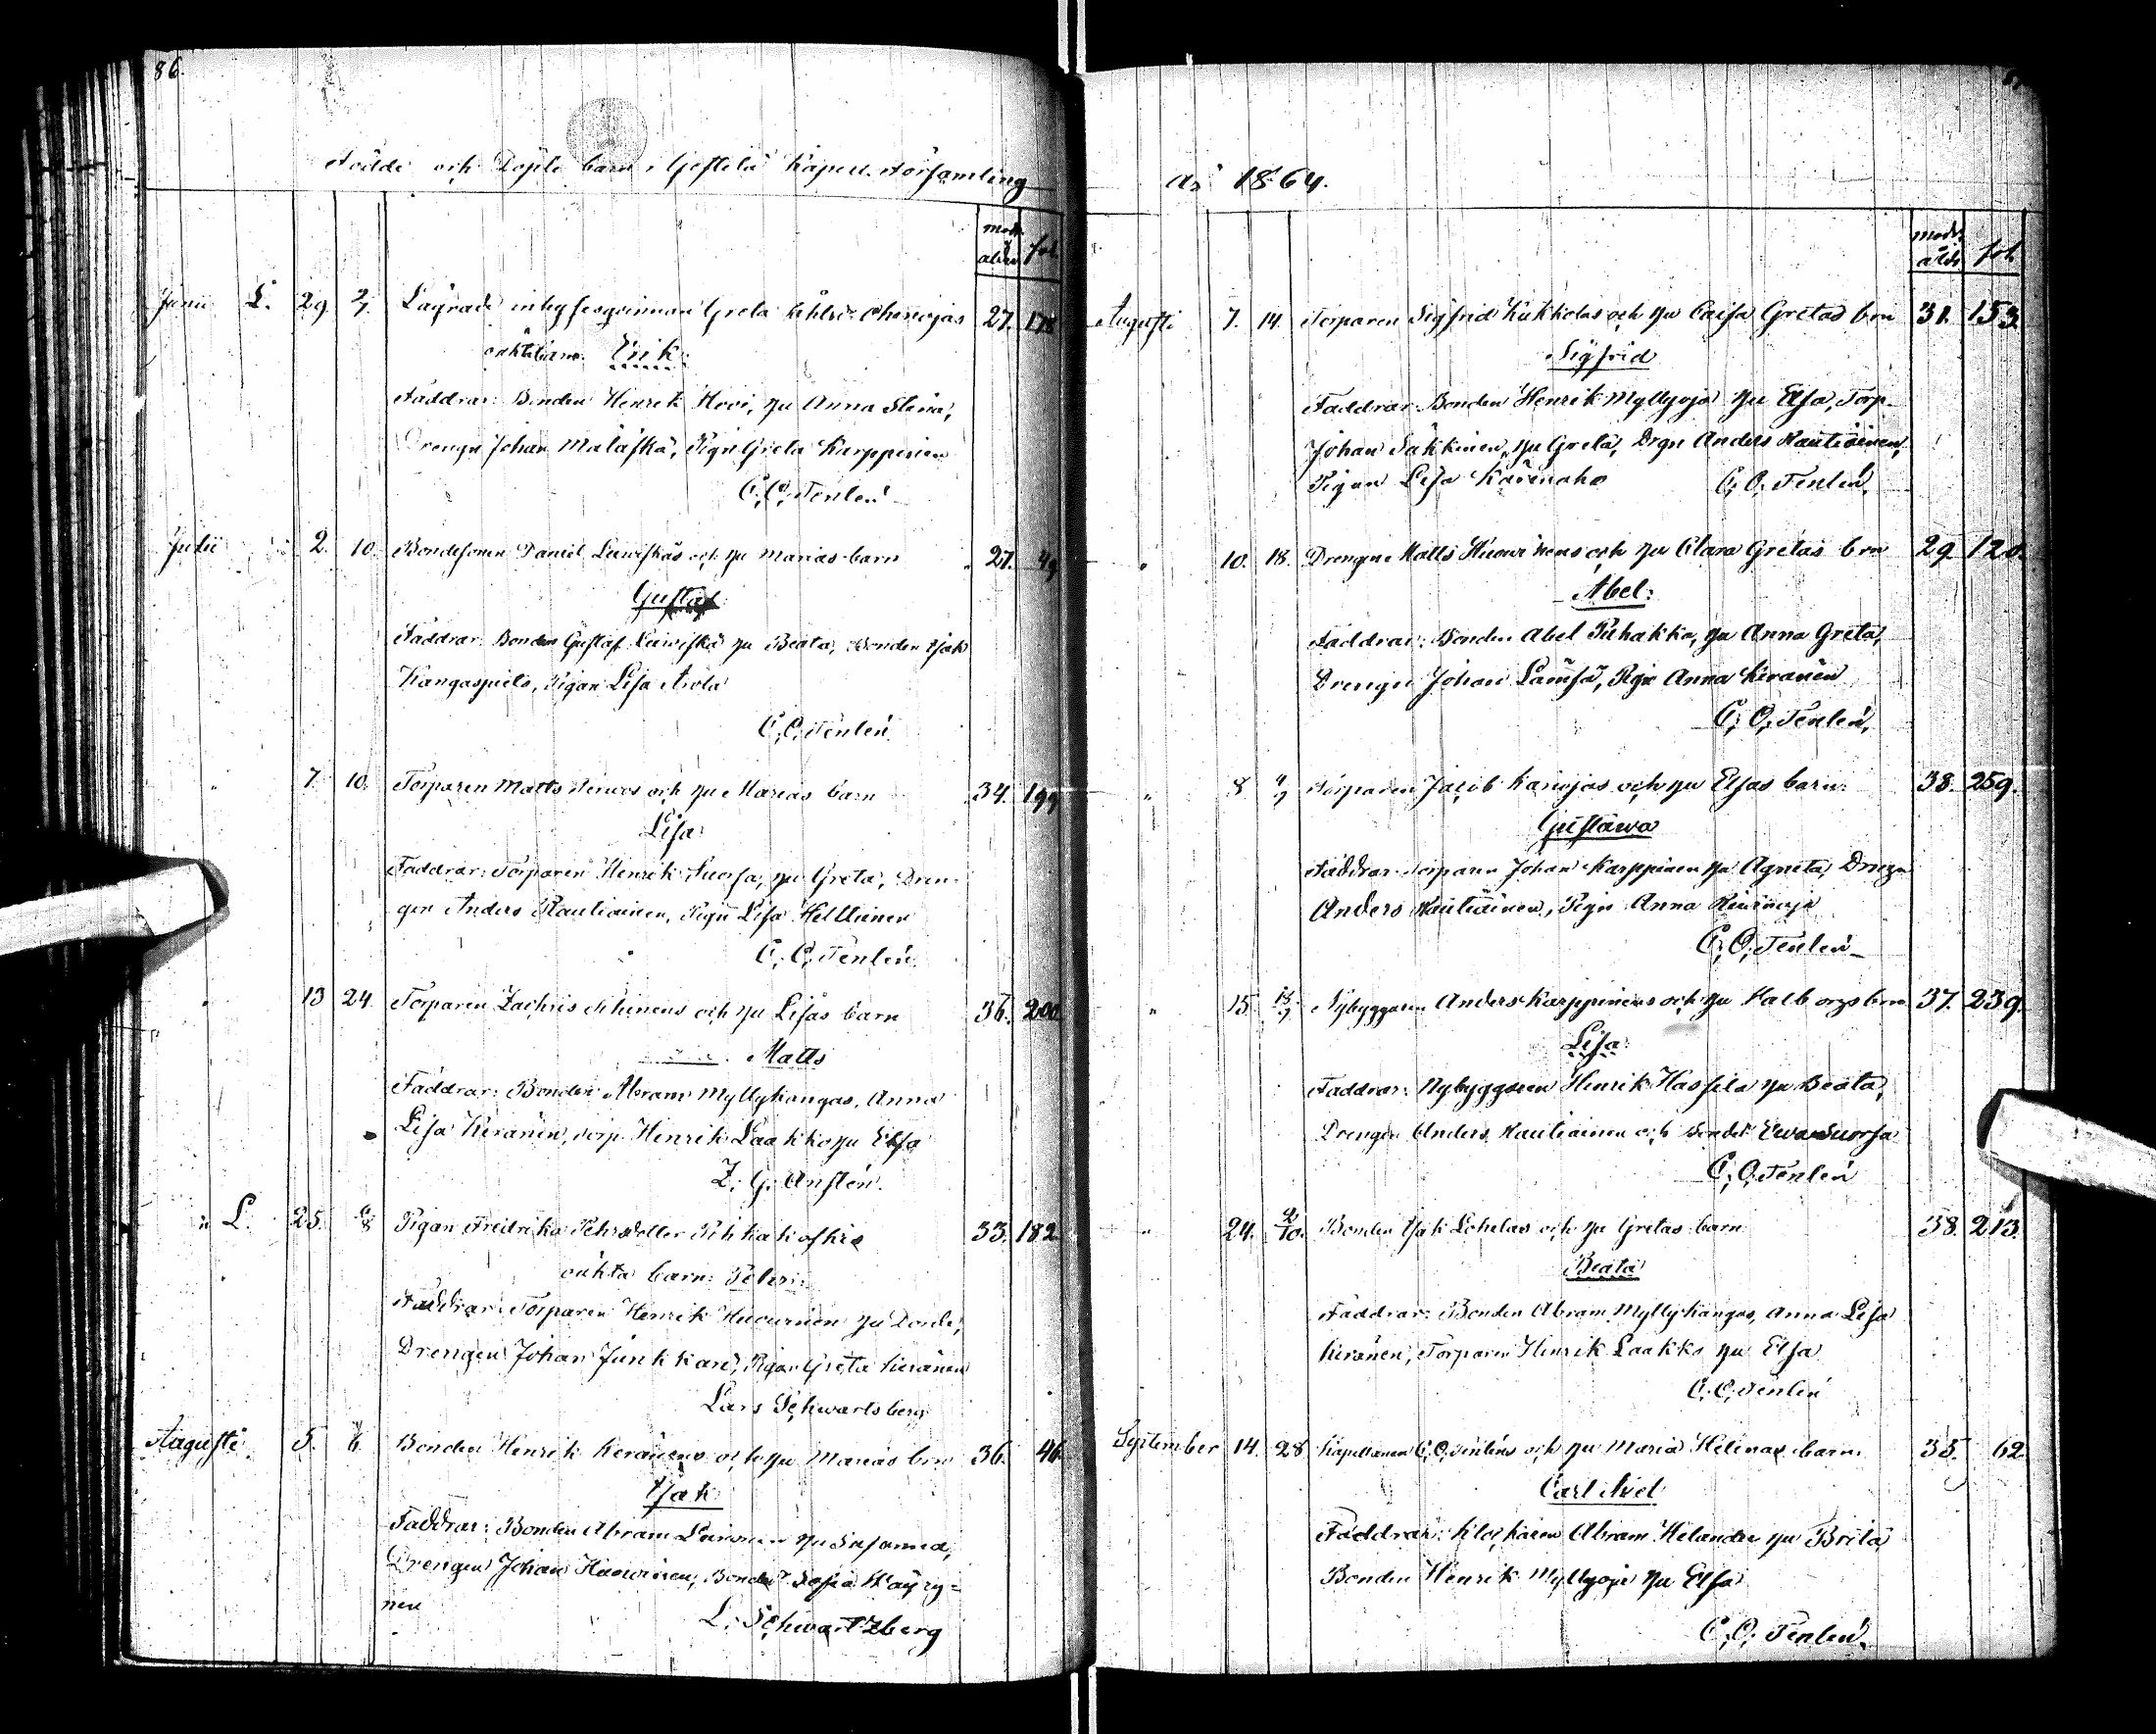 86.
Födde och Döpte barn i Kapell Församling
mod. ålder fol.
Junii L. 29 Lägrade inhysesqvinnan Greta 27. 178
oäkta barn. Erik.
Faddrar: Bonden Henrik Hovi, hu Anna Stina,
Drengn Johan Mälaskä, Pign Greta Karppinen
C. O. Tenlén
Julii 2. 10. Bondesonen Daniel Leiviskäs och hu Marias barn 27. 49
Gustaf
Faddrar: Bonden Gustaf Leiviskä hu Beata, Bonden Isak
Pigan Lisa Arola
C. O. Tenlén
" 7. 10. Torparen Matts och hu Marias barn 34. 199
Lisa:
Faddrar: Torparen Henrik Suorsa, hu Greta, Dren-
gen Anders Rautiainen, Pign Lisa Helttunen
C. O. Tenlén.
" 13 24. Torparen Zachris och hu Lisas barn 36. 200.
Matts
Faddrar: Bonden Abram Myllykangas, Anna
Lisa Keränen, torp. Henrik Laakko hu Elsa
Z. G. Anstén.
" L. 25. Pigan Fredrika Pehrsdotter Pihkakoskis 33. 182.
oäkta barn: Pehr:
Faddrar: Torparen Henrik Huovinen hu Dorde,
Drengen Johan Junkkari, Pigan Greta Keränen
Lars Schwartsberg
Augusti 5. Bonden Henrik Keränens och hu Marias brn 36. 46.
Isak:
Faddrar: Bonden Abram Leinonen hu Susanna,
Drengen Johan Huovinen, Bonded. Sofia Wäyry-
nen
L. Schwartzberg
År 1864.
mod. ålder fol.
Augusti 7. 14. Torparen Sigfrid Kukkolas och hu Caisa Gretas brn 31. 153.
Sigfrid
Faddrar: Bonden Henrik Myllyoja hu Elsa, Torp.
Johan Säkkinen, hu Greta, Drgn Anders Rautiainen,
Pigan Lisa Karinaho C. O. Tenlén.
" 10. 18. Drengen Matts Huovinens och hu Clara Gretas brn 29. 120.
Abel:
Faddrar: Bonden Abel Puhakka, hu Anna Greta,
Drengn Johan Lämsä, Pign Anna Keränen
C. O. Tenlén,
" 8 4/9 Torparen Jacob Kanojas och hu Elsas barn: 38. 259.
Gustawa
Faddrar: Torparen Johan Karppinen hu Agneta, Drengn
Anders Rautiainen, Pign Anna
C. O. Tenlén
" 15. 18/9 Nybyggaren Anders Karppinens och hu Walborgs brn 37. 239.
Lisa:
Faddrar: Nybyggaren Henrik Hassila hu Beata,
Drengen Anders Rautiainen och Bonded. Ewa Suorsa
C. O. Tenlén
" 24. 2/10. Bonden Isak Lohelas och hu Gretas barn 38. 213.
Beata
Faddrar: Bonden Abram Myllykangas, Anna Lisa
Keränen, Torparen Henrik Laakko hu Elsa
C. O. Tenlén
September 14. 28. Kapellanen C. O. Tenléns och hu Maria Helenas barn. 35. 62
Carl Axel
Faddrar: Klockaren Abram Helander hu Brita
Bonden Henrik Myllyoja hu Elsa
C. O. Tenlén.